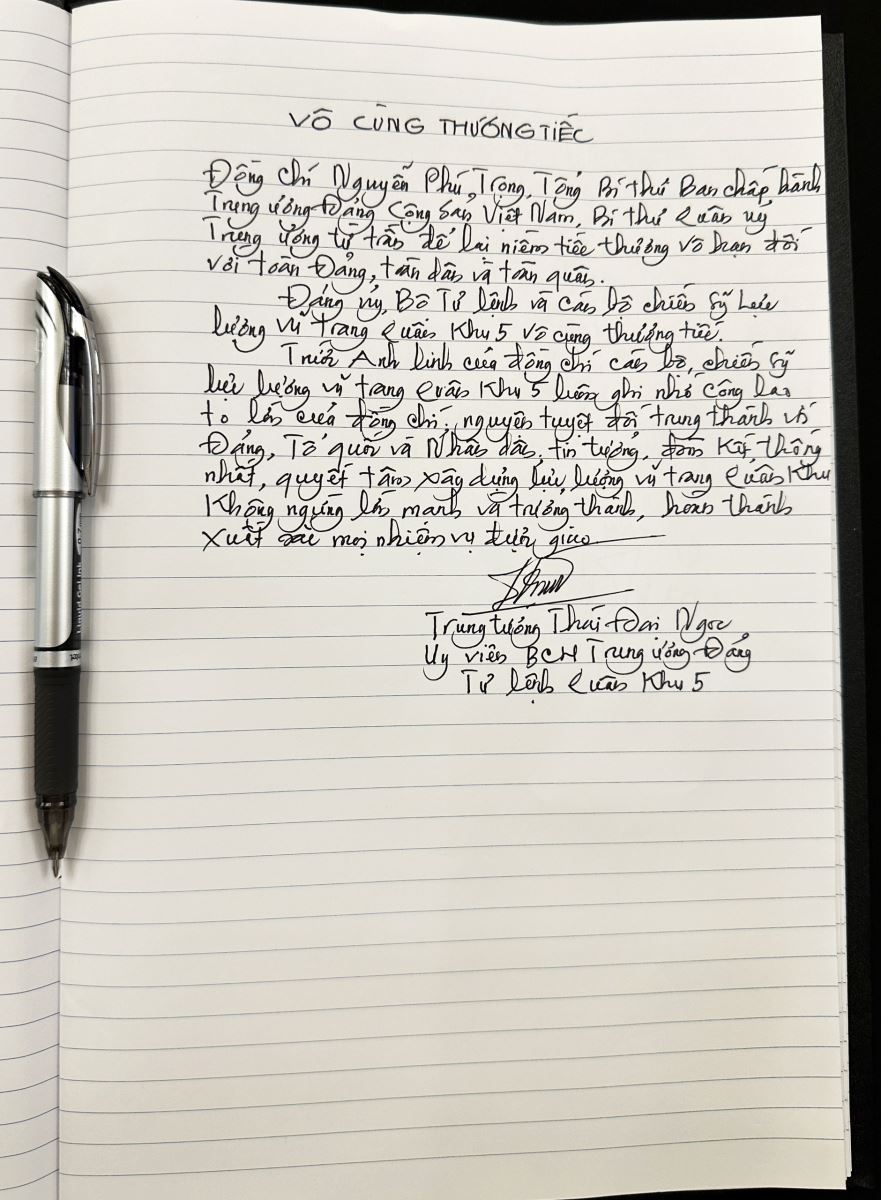 VÔ CÙNG THƯƠNG TIẾC
Đồng chí Nguyễn Phú Trọng, Tổng Bí thư Ban chấp hành
Trung ương Đảng Cộng sản Việt Nam, Bí thư Quân uỷ
Trung ương từ trần để lại niềm tiếc thương vô hạn đối
với toàn Đảng, toàn dân và toàn quân.
Đảng uỷ, Bộ Tư lệnh và cán bộ chiến sỹ Lực
lượng vũ trang Quân Khu 5 vô cùng thương tiếc.
Trước Anh linh của đồng chí cán bộ, chiến sỹ
lực lượng vũ trang Quân Khu 5 luôn ghi nhớ công lao
to lớn của đồng chí; nguyện tuyệt đối trung thành với
Đảng, Tổ quốc và Nhân dân, tin tưởng, đoàn kết, thống
nhất, quyết tâm xây dựng lực lượng vũ trang Quân Khu
không ngừng lớn mạnh và trưởng thành, hoàn thành
xuất sắc mọi nhiệm vụ được giao
Trung tướng Thái Đại Ngọc
Uỷ viên BCH Trung ương Đảng
Tư lệnh Quân Khu 5
Liquid Gel Ink 0.7